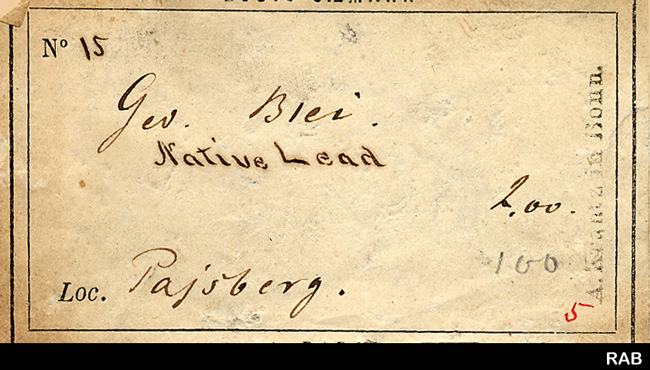 Nº 15
Gev. Blei.
Native Lead
2,00.
100
Loc. Pajsberg.
5
A. Krantz in Bonn.
RAB